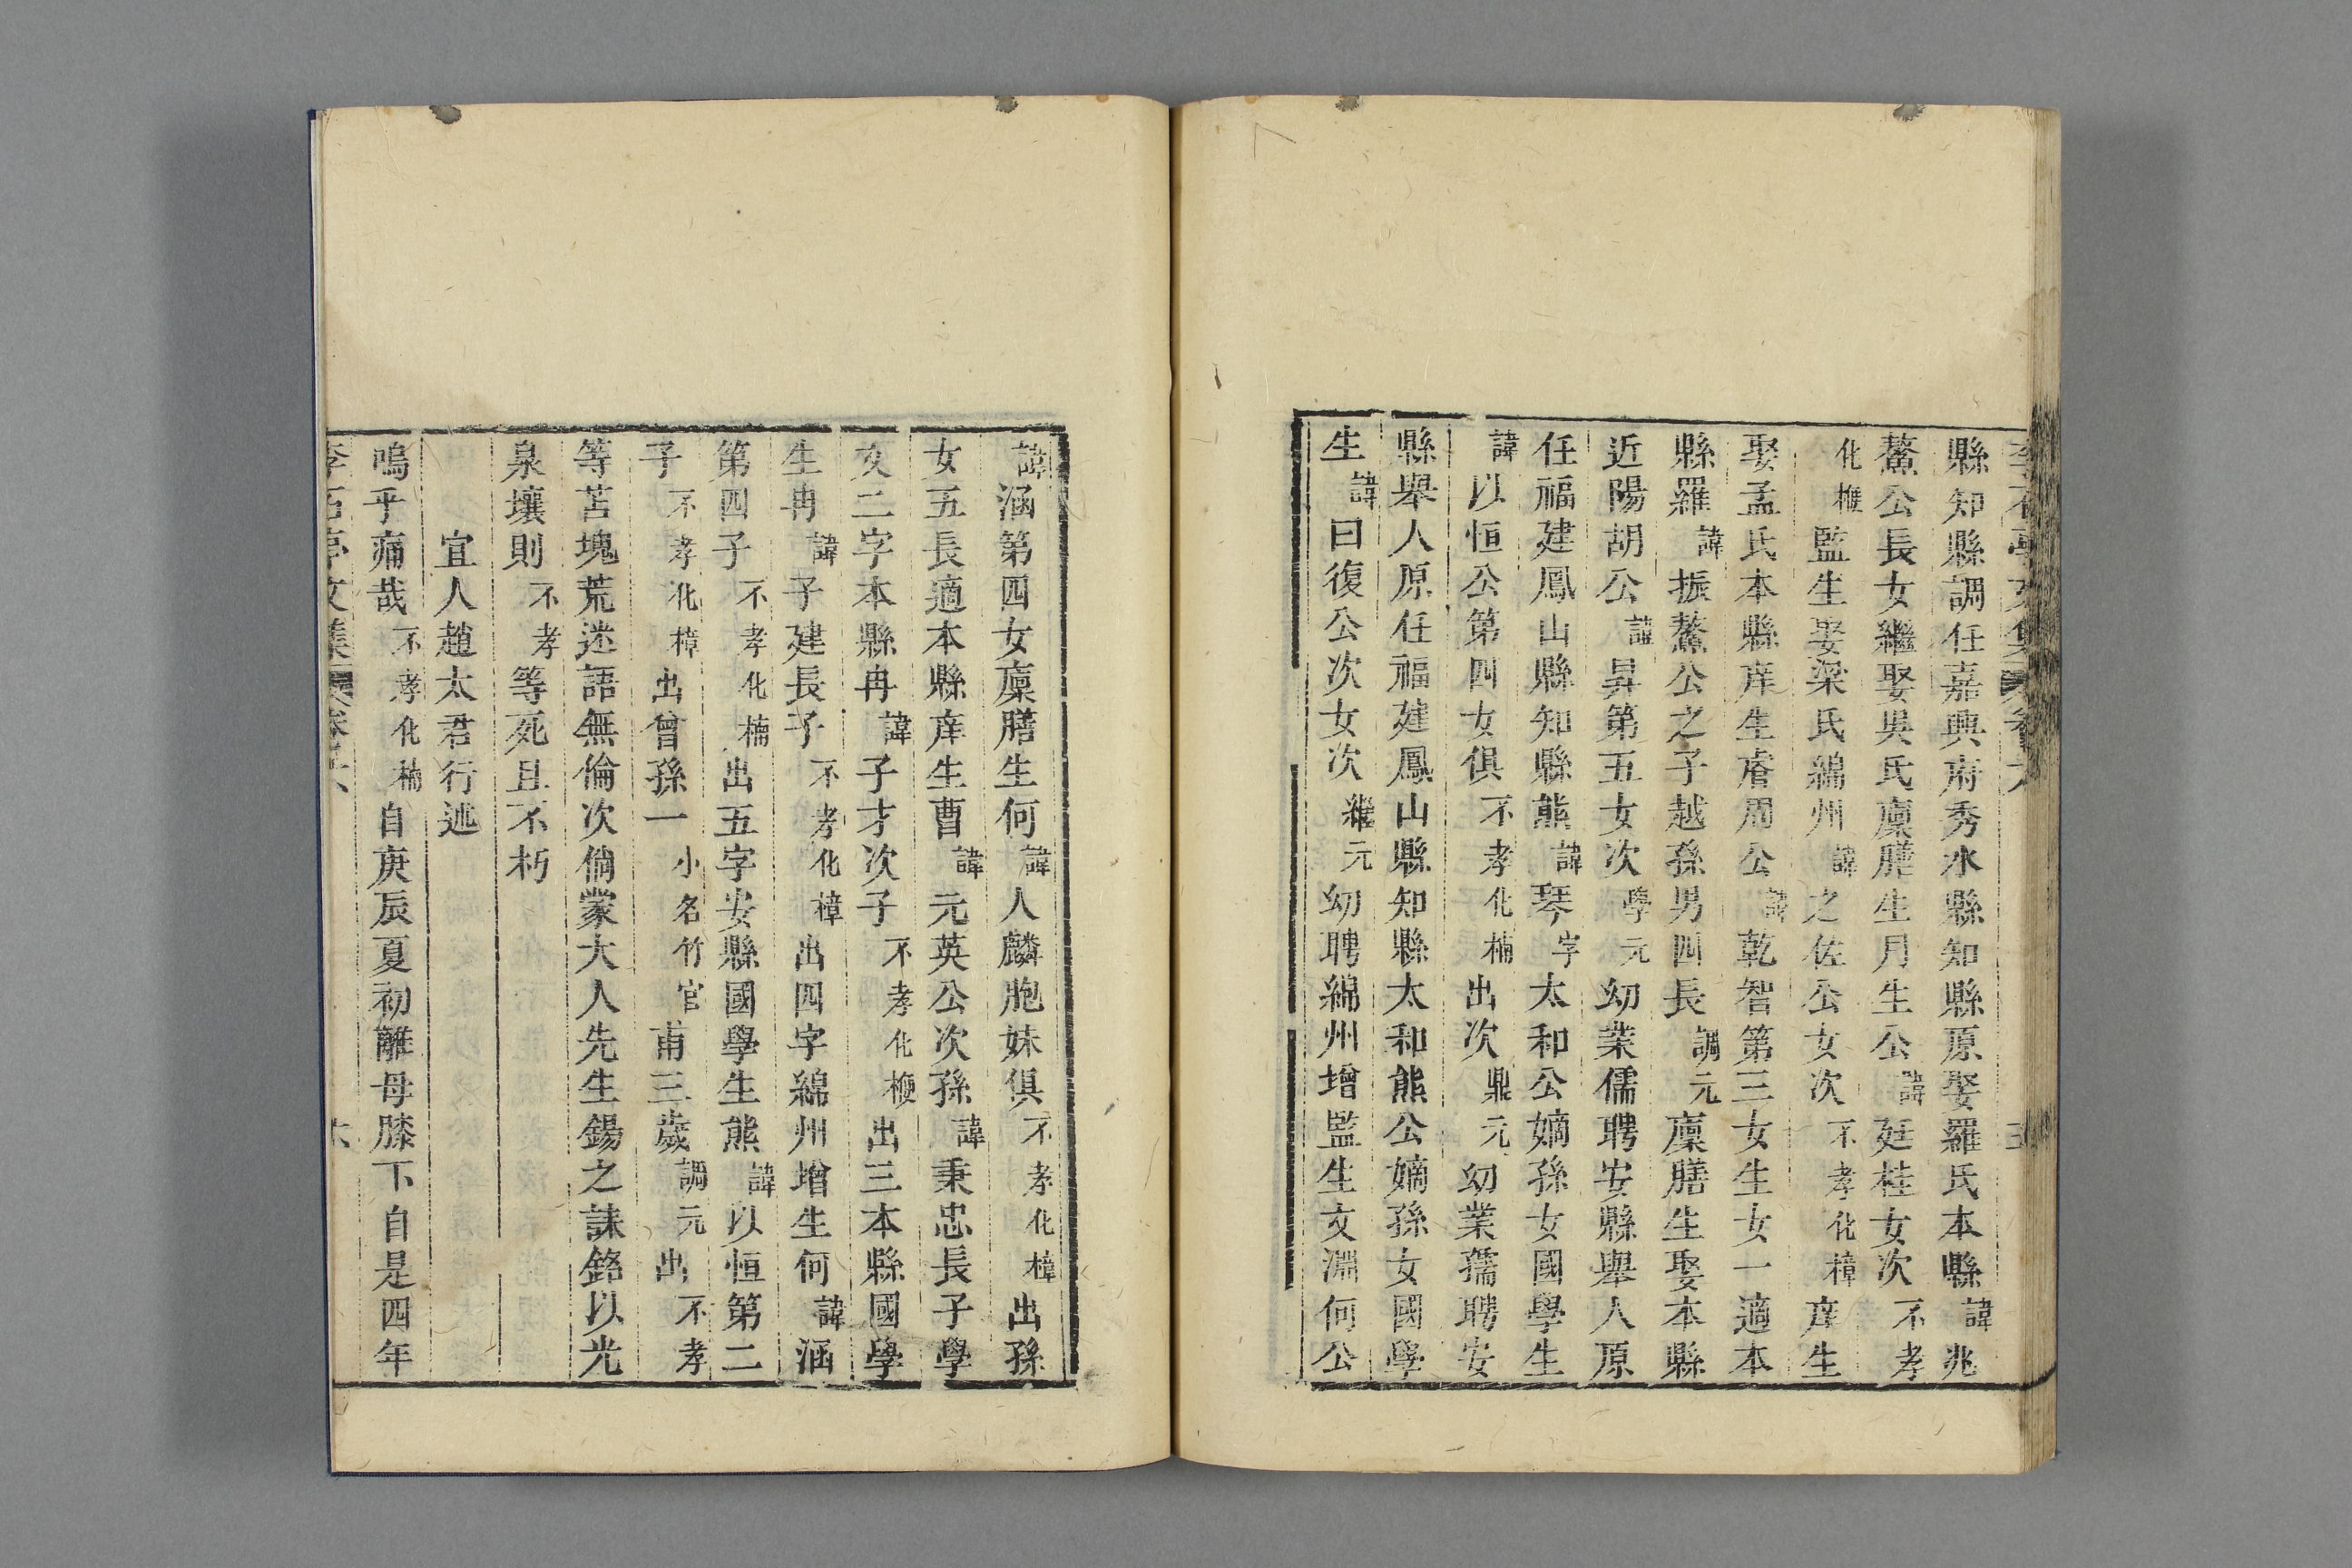 縣知縣調任嘉興府秀水縣知縣原娶羅氏本縣諱兆
鰲公長女繼娶吳氏廩膳生月生公諱廷桂女次不孝
化檙監生娶梁氏綿州諱之佐公女次不孝化樟庠生
娶孟氏本縣庠生睿周公諱乾智第三女生女一適本
縣羅諱振鰲公之子越孫男四長調元廩膳生娶本縣
近陽胡公諱昇第五女次學元幼業儒聘安縣舉人原
任福建鳳山縣知縣熊諱琴字太和公嫡孫女國學生
諱以恒公第四女俱不孝化楠出次鼎元幼業孺聘安
縣舉人原任福建鳳山縣知縣太和熊公嫡孫女國學
生諱曰復公次女次繼元幼聘綿州增監生文淵何公
諱涵第四女廩膳生何諱人麟胞妹俱不孝化樟出孫
女五長適本縣庠生曹諱元英公次孫諱秉忠長子學
文二字本縣冉諱子才次子不孝化楩出三本縣國學
生冉諱子建長子不孝化樟出四字綿州增生何諱涵
第四子不孝化楠出五字安縣國學生熊諱以恒第二
子不孝化樟出曾孫一小名竹官甫三歲調元出不孝
等苫塊荒迷語無倫次倘蒙大人先生錫之誄銘以光
泉壤則不孝等死且不朽
宜人趙太君行述
嗚乎痛哉不孝化楠自庚辰夏初離母膝下自是四年
李石亭文集 卷之六 六